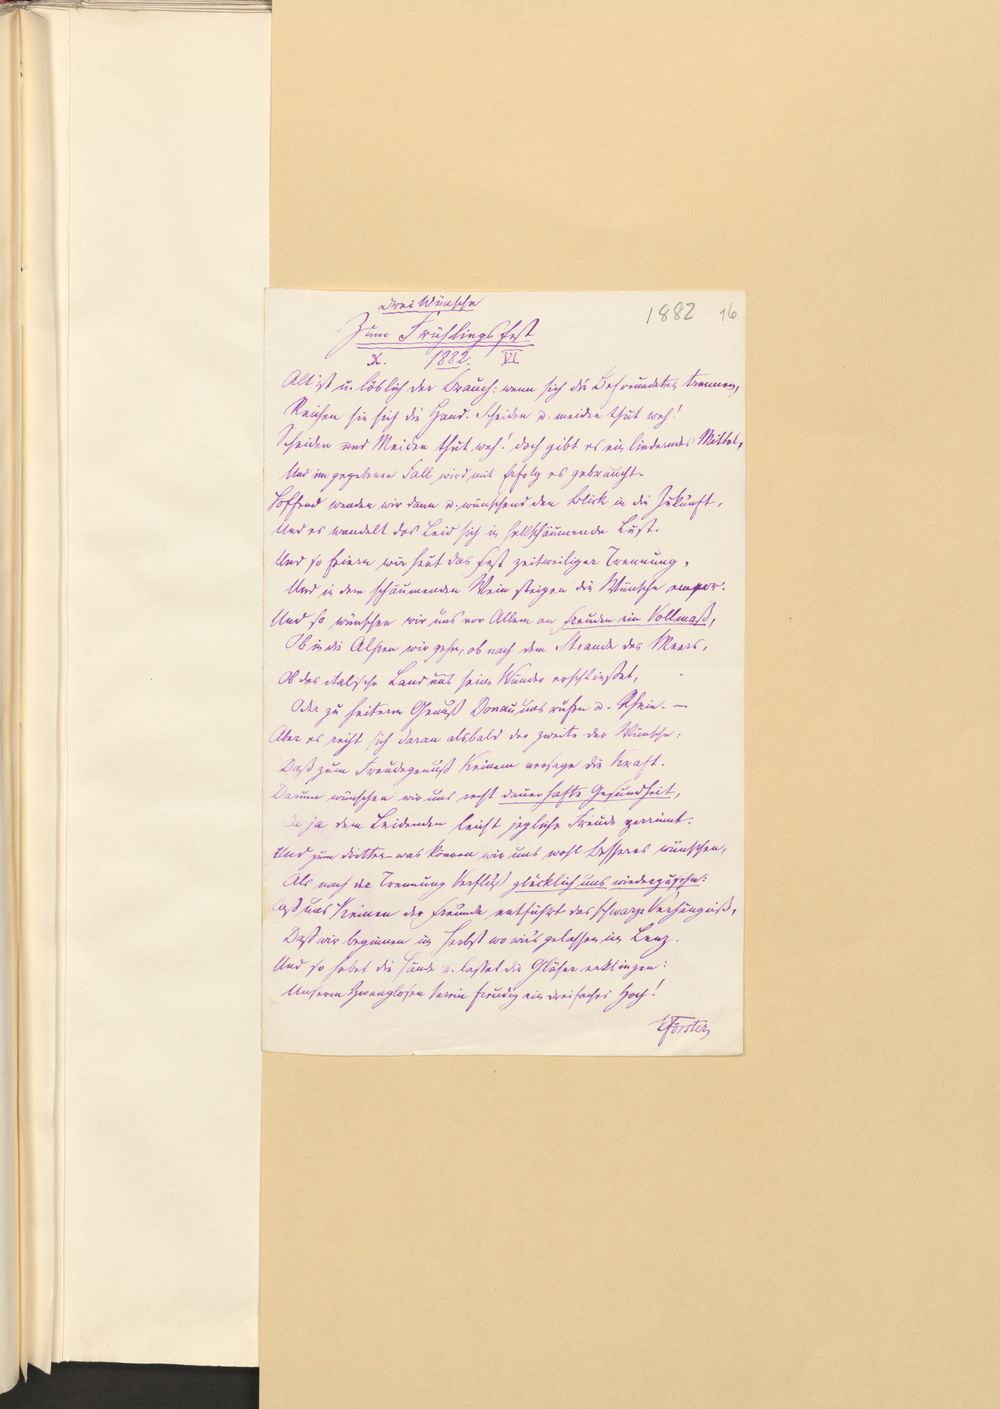 Drei Wünsche
1882 16
Zum Frühlingsfest
X. 1882. VI
Alt ist u. löblich der Brauch: wenn sich die Befreundeten trennen,
Reichen sie sich die Hand. Scheiden u. meiden thut weh!
Scheiden und Meiden thut weh! doch gibt es ein linderndes Mittel,
Und im gegebenen Fall wird mit Erfolg es gebraucht.
Hoffend wenden wir dann u. wünschend den Blick in die Zukunft,
Und es wandelt das Leid sich in hellschäumende Lust.
Und so feiern wir heut das Fest zeitweiliger Trennung,
Und in dem schäumenden Wein steigen die Wünsche empor.
Und so wünschen wir uns vor Allem an Freuden ein Vollmaß,
Ob in die Alpen wir gehn, ob nach dem Strande des Meers,
Ob das italische Land uns seine Wunder erschließet,
Oder zu heiterm Genuß Donau uns rufen u. Rhein. —
Aber es reiht sich daran alsbald der zweite der Wünsche:
Daß zum Freudegenuß Keinem versage die Kraft.
Darum wünschen wir uns recht dauerhafte Gesundheit,
Da ja dem Leidenden leicht jegliche Freude zerrinnt.
Und zum dritten – was können wir uns wohl besseres wünschen,
Als nach der Trennung Verfluß glücklich uns wiederzusehn:
Daß uns Keinen der Freunde entführt das schwarze Verhängniß,
Daß wir beginnen im Herbst wo wir's gelassen im Lenz.
Und so hebet die Hände u. lasset die Gläser erklingen:
Unserm Zwanglosen Verein freudig ein dreifaches Hoch!
EForster